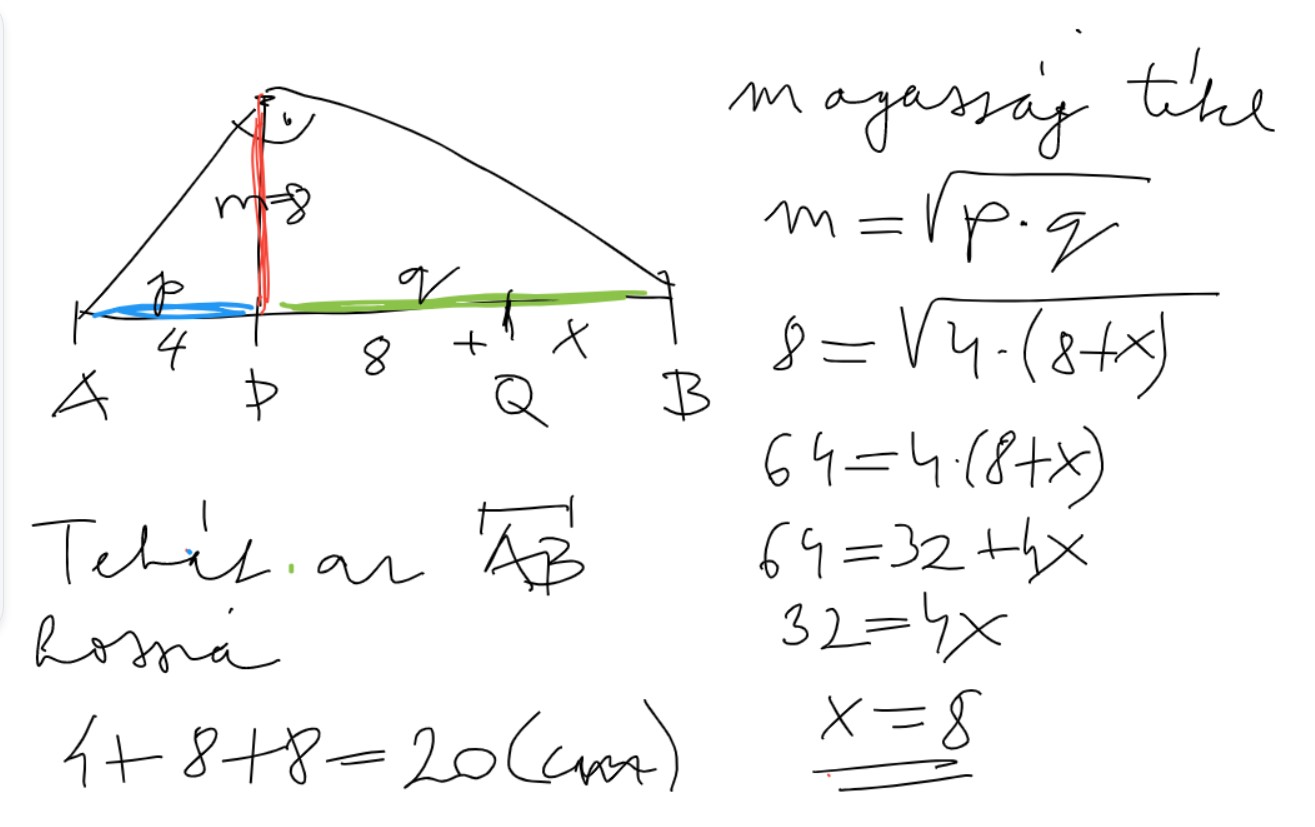 m=8
p
q
4
8 + x
A P Q B
magasság tétel
m = √p·q
8 = √4·(8+x)
64=4·(8+x)
64=32+4x
32=4x
x=8
Tehát az AB
hossza
4+8+8=20(cm)